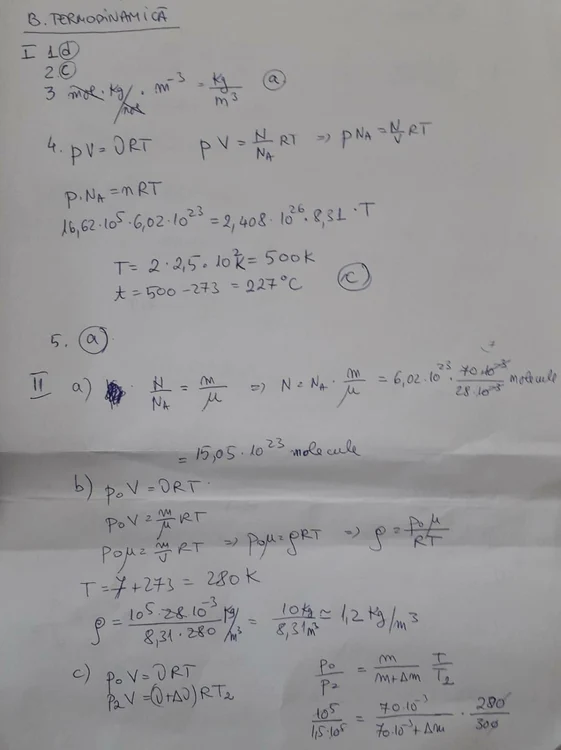 B. TERMODINAMICĂ
I 1 d
2 c
3 mol · kg/mol · m^-3 = kg/m^3 a
4. pV = υRT pV = N/N_A RT => pN_A = N/V RT
p·N_A = nRT
16,62·10^5·6,02·10^23 = 2,408·10^26·8,31·T
T = 2·2,5·10^2 K = 500K
t = 500-273 = 227°C c
5. a
II a) N/N_A = m/μ => N = N_A · m/μ = 6,02·10^23 · 70·10^-3/28·10^-3 molecule
= 15,05·10^23 molecule
b) p₀V = υRT
p₀V = m/μ RT
p₀μ = m/V RT => p₀μ = ρRT => ρ = p₀μ/RT
T = 7+273 = 280K
ρ = 10^5·28·10^-3/8,31·280 Kg/m^3 = 10Kg/8,31m^3 ≃ 1,2 Kg/m^3
c) p₀V = υRT p₀/p₂ = m/m+Δm T/T₂
p₂V = (υ+Δυ)RT₂
10^5/1,5·10^5 = 70·10^-3/70·10^-3+Δm · 280/300